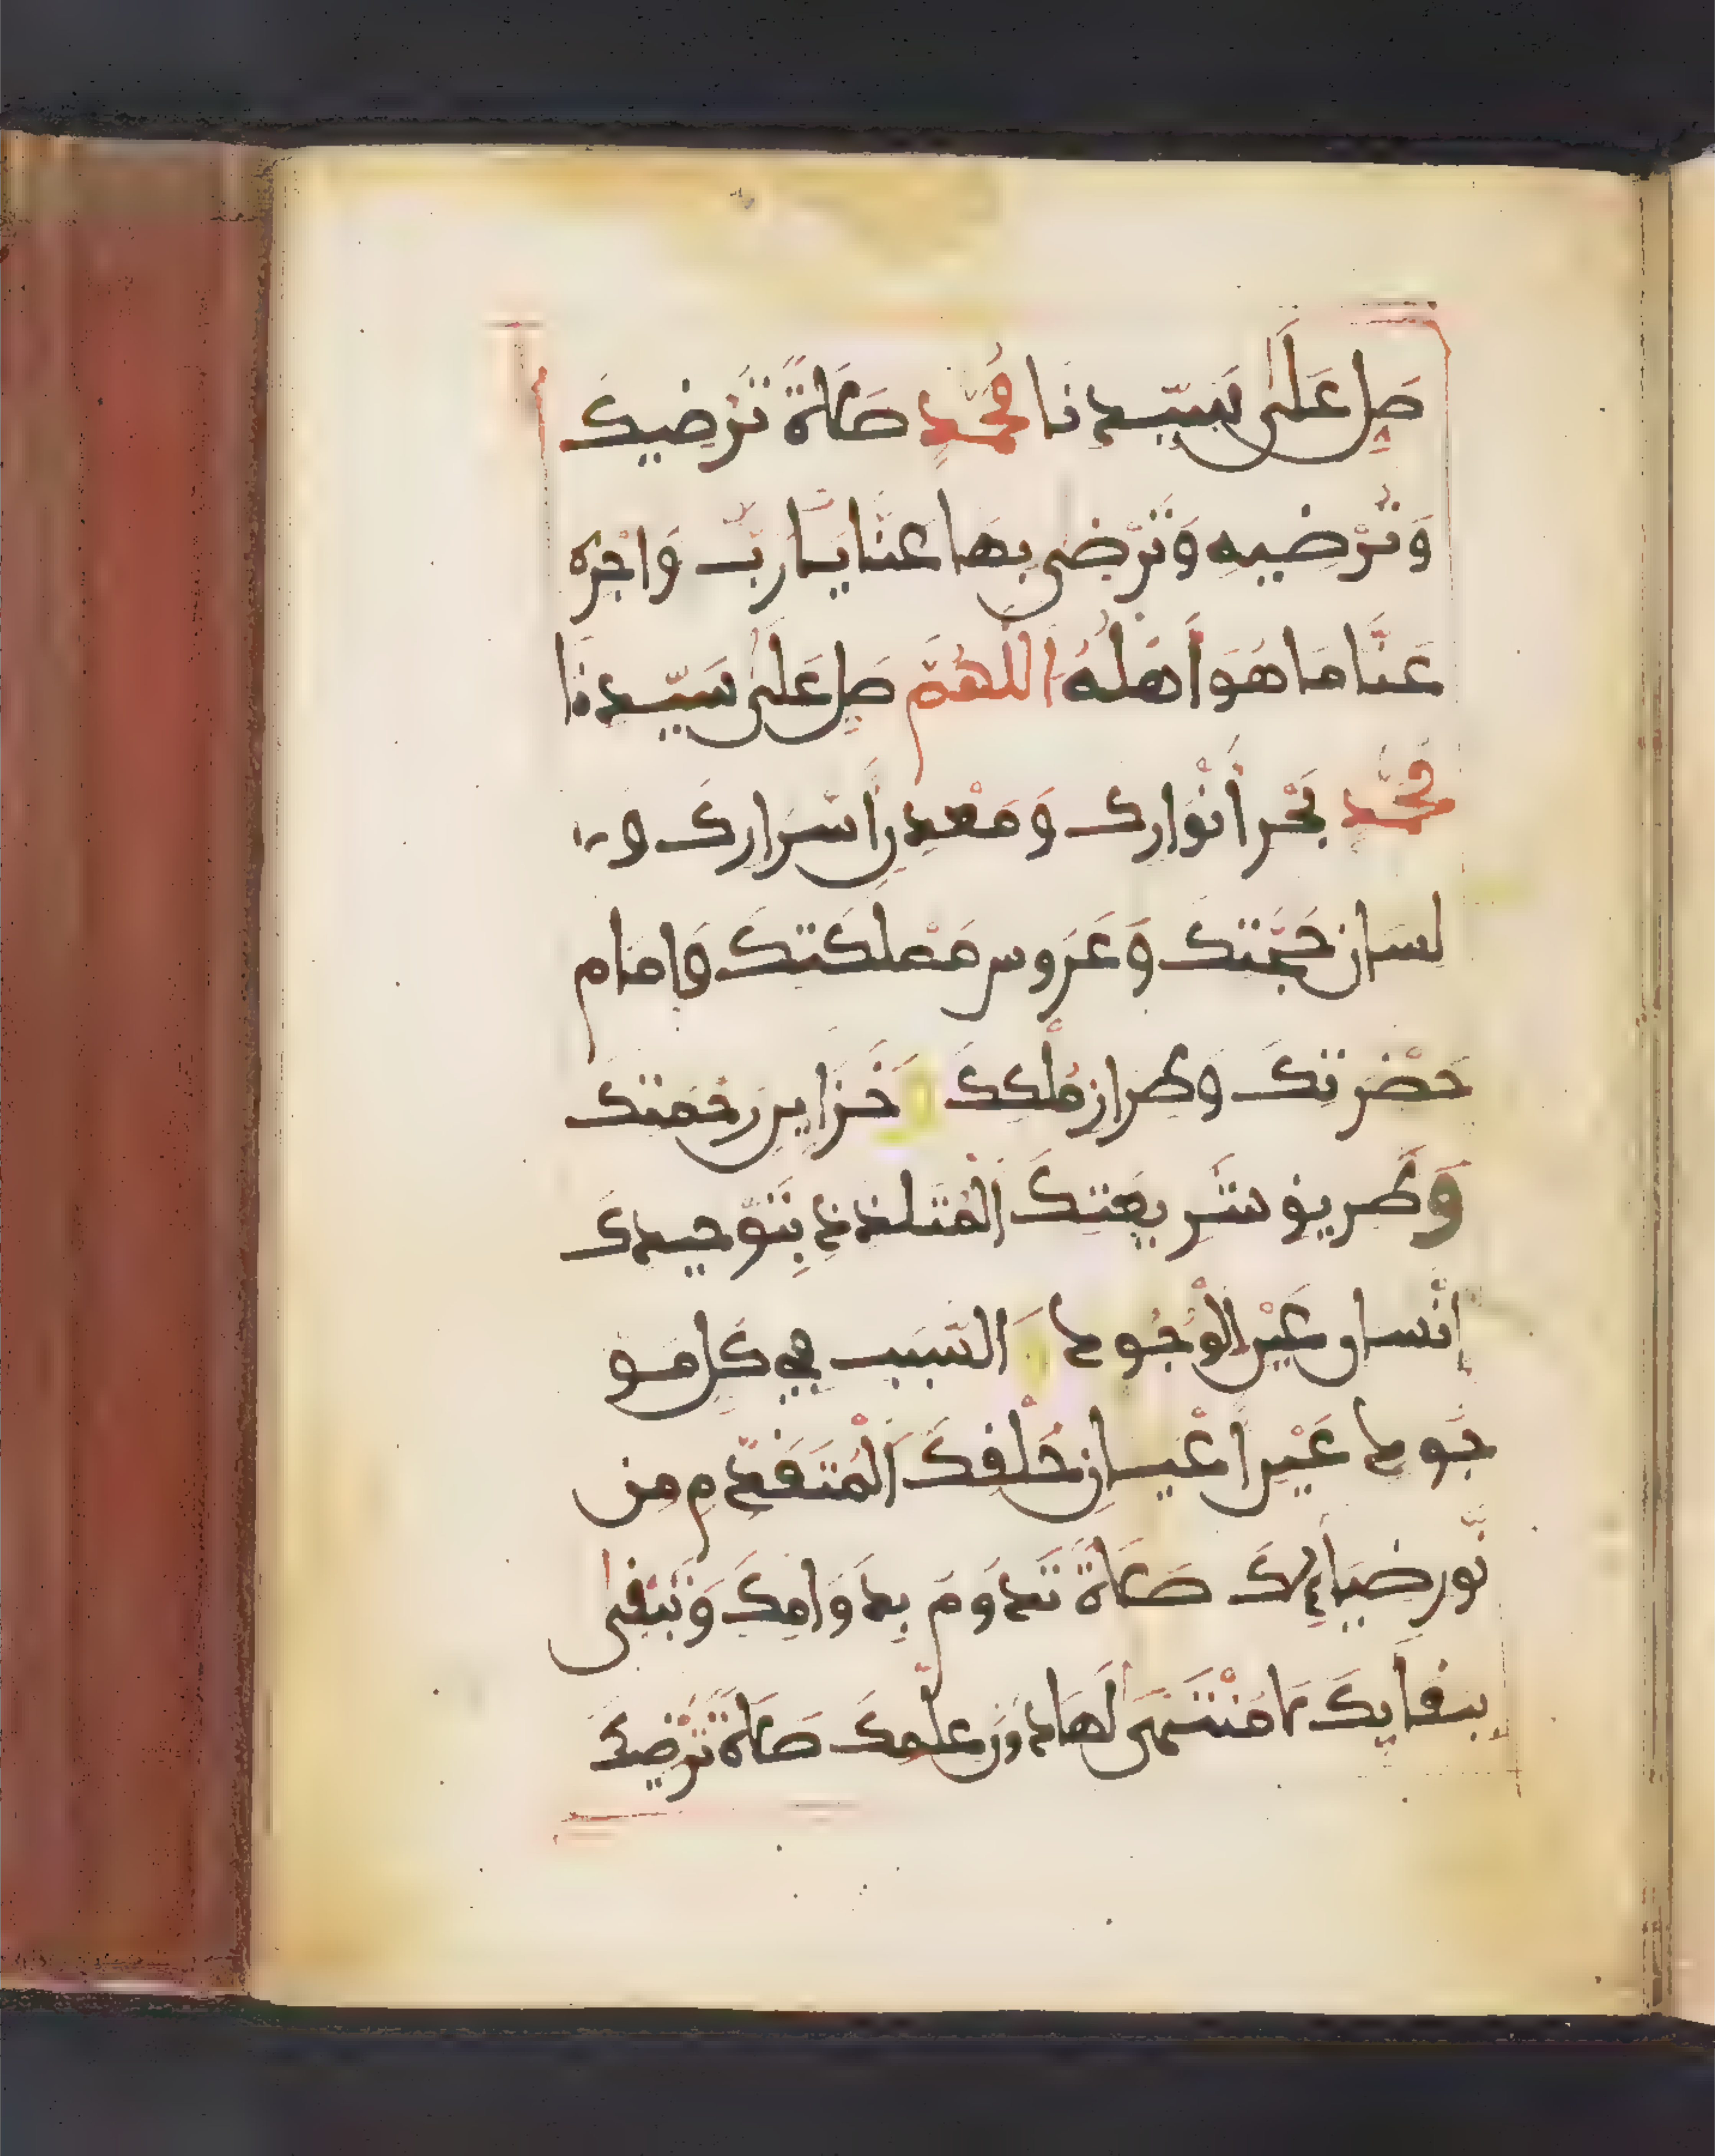 صَلِّ عَلَى سَيِّدِنَا مُحَمَّدٍ صَلَاةً تُرْضِيكَ
وَتُرْضِيهِ وَتَرْضَى بِهَا عَنَّا يَا رَبِّ وَاجْزِهِ
عَنَّا مَا هُوَ أَهْلُهُ اللَّهُمَّ صَلِّ عَلَى سَيِّدِنَا
مُحَمَّدٍ بَحْرِ أَنْوَارِكَ وَمَعْدِنِ أَسْرَارِكَ وَ
لِسَانِ حُجَّتِكَ وَعَرُوسِ مَمْلَكَتِكَ وَإِمَامِ
حَضْرَتِكَ وَطِرَازِ مُلْكِكَ وَخَزَايِنِ رَحْمَتِكَ
وَطَرِيقِ شَرِيعَتِكَ الْمُتَلَذِّذِ بِتَوْحِيدِكَ
إِنْسَانِ عَيْنِ الْوُجُودِ وَالسَّبَبِ فِي كُلِّ مَوْ
جُودٍ عَيْنِ أَعْيَانِ خَلْقِكَ الْمُتَقَدِّمِ مِنْ
نُّورِ ضِيَائِكَ صَلَاةً تَدُومُ بِدَوَامِكَ وَتَبْقَى
بِبَقَايِكَ لَا مُنْتَهَى لَهَا دُونَ عِلْمِكَ صَلَاةً تُرْضِيكَ